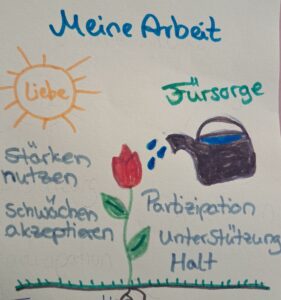 Meine Arbeit
Liebe
Fürsorge
Stärken
nutzen
Schwächen
akzeptieren
Partizipation
Unterstützung
Halt